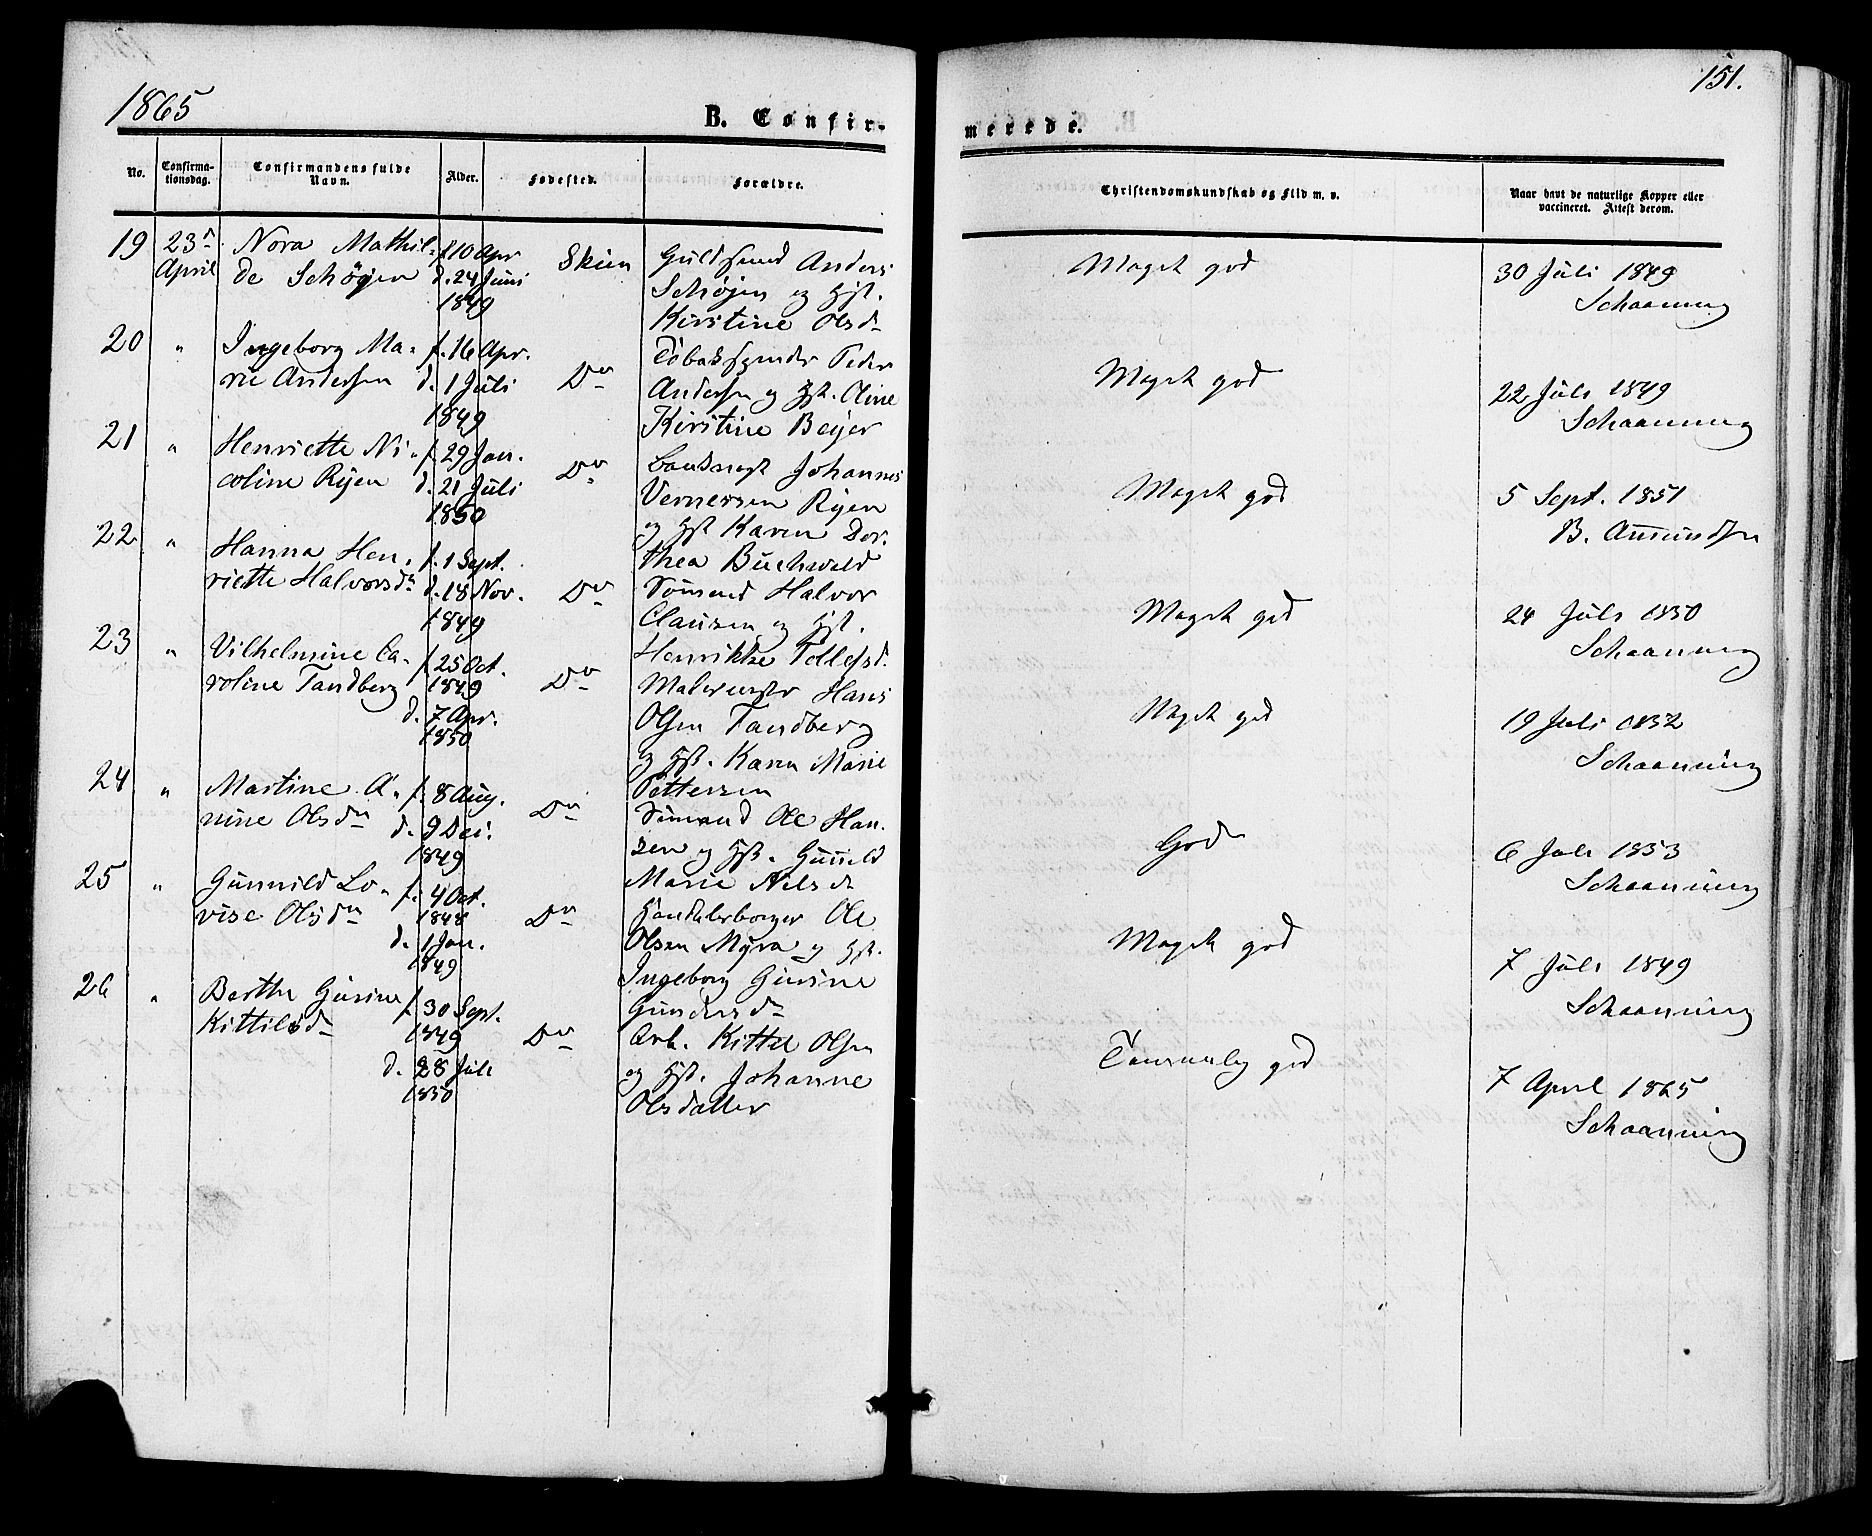 1865
B. Confir-
merede.
151.
No.
Confirma-
tionsdag.
Confirmandens fulde
Navn.
Alder.
Fødested.
Forældre.
Christendomskundskab og Flid m. v.
Naar havt de naturlige Kopper eller
vaccineret. Attest derom.
19 23 Nora Mathil- f. 10 Apr Skien Anders Meget god 30 Juli 1849
April de Schøyen d. 24 Juni Schøyen og Hst. Schaanning
1849 Kirstine Olsdn
20 " Ingeborg Ma- f. 16 Apr. Do Peder Meget god 22 Juli 1849
rie Andersen d. 1 Juli Andersen og Hst. Oline Schaanning
1849 Kirstine Beyer
21 " Henriette Ni- f. 29 Jan. Do Johannes Meget god 5 Sept. 1851
coline Ryen d. 21 Juli Vernersen Ryen B. Amundsen
1850 og Hst Karen Dor-
thea Buchwald
22 " Hanna Hen- f. 1 Sept. Do Sømand Halvor Meget god 24 Juli 1850
riette Halvorsdn d. 18 Nov. Clausen og Hst. Schaanning
1849 Henrikke Tellefsd.
23 " Vilhelmine Ca- f. 25 Oct. Do Malermester Hans Meget god 19 Juli 1852
roline Tandberg 1849 Olsen Tandberg Schaanning
d. 7 Apr. og Hst. Karen Marie
1850 Pettersen
24 " Martine A- f. 8 Aug. Do Sømand Ole Han- God 6 Juli 1853
nine Olsdn d. 9 Dec. sen og Hst. Gunild Schaanning
1849 Marie Nilsd
25 " Gunnild Lo- f. 4 Oct. Do Handelsborger Ole Meget god 7 Juli 1849
vise Olsdn 1848 Olsen Myra og Hst. Schaanning
d. 1 Jan. Ingeborg Gusine
1849 Gundersd
26 " Berthe Gusine f. 30 Sept. Do Arb. Kittel Olsen Temmelig god 7 April 1865
Kittilsd 1849 og Hst. Johanne Schaanning
d. 28 Juli Olsdatter
1850